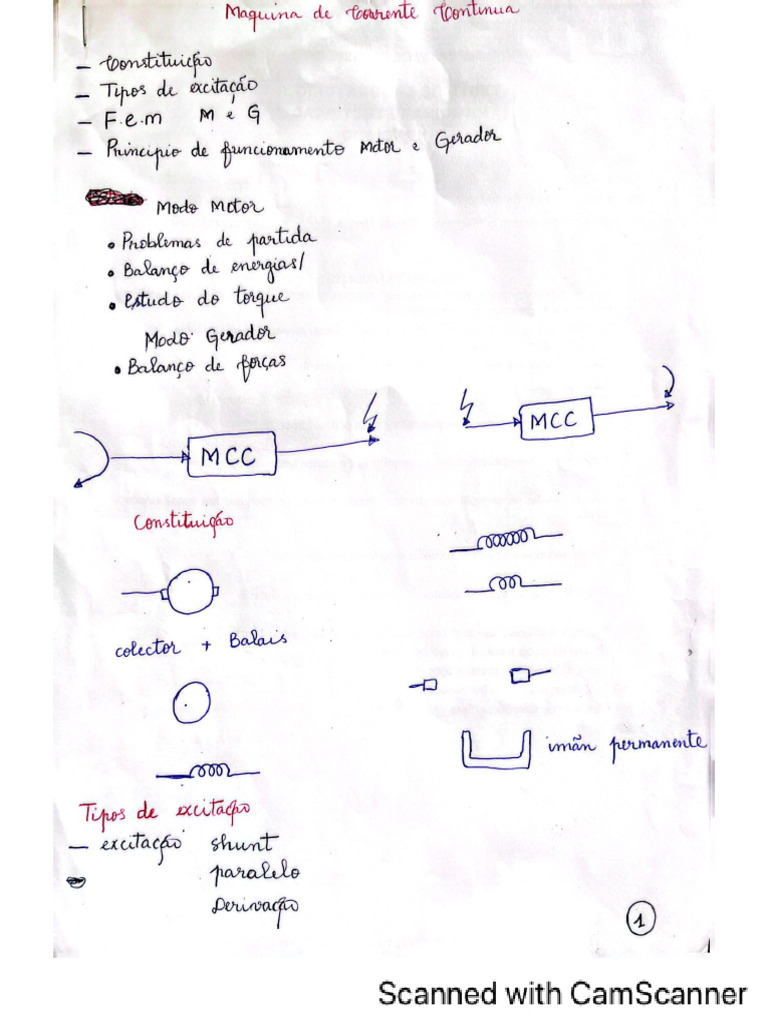 Maquina de Corrente Continua
- Constituição
- Tipos de excitação
- F.e.m M e G
- Principio de funcionamento Motor e Gerador
Modo Motor
• Problemas de partida
• Balanço de energias/
• Estudo do torque
Modo Gerador
• Balanço de forças
MCC
MCC
Constituição
colector + Balais
imãn permanente
Tipos de excitação
- excitação shunt
paralelo
Derivação
1
Scanned with CamScanner